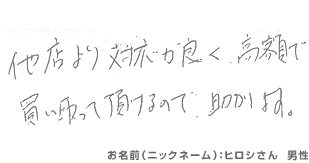 他店より対応が良く、高額で
買い取って頂けるので、助かります。
お名前(ニックネーム):ヒロシさん 男性